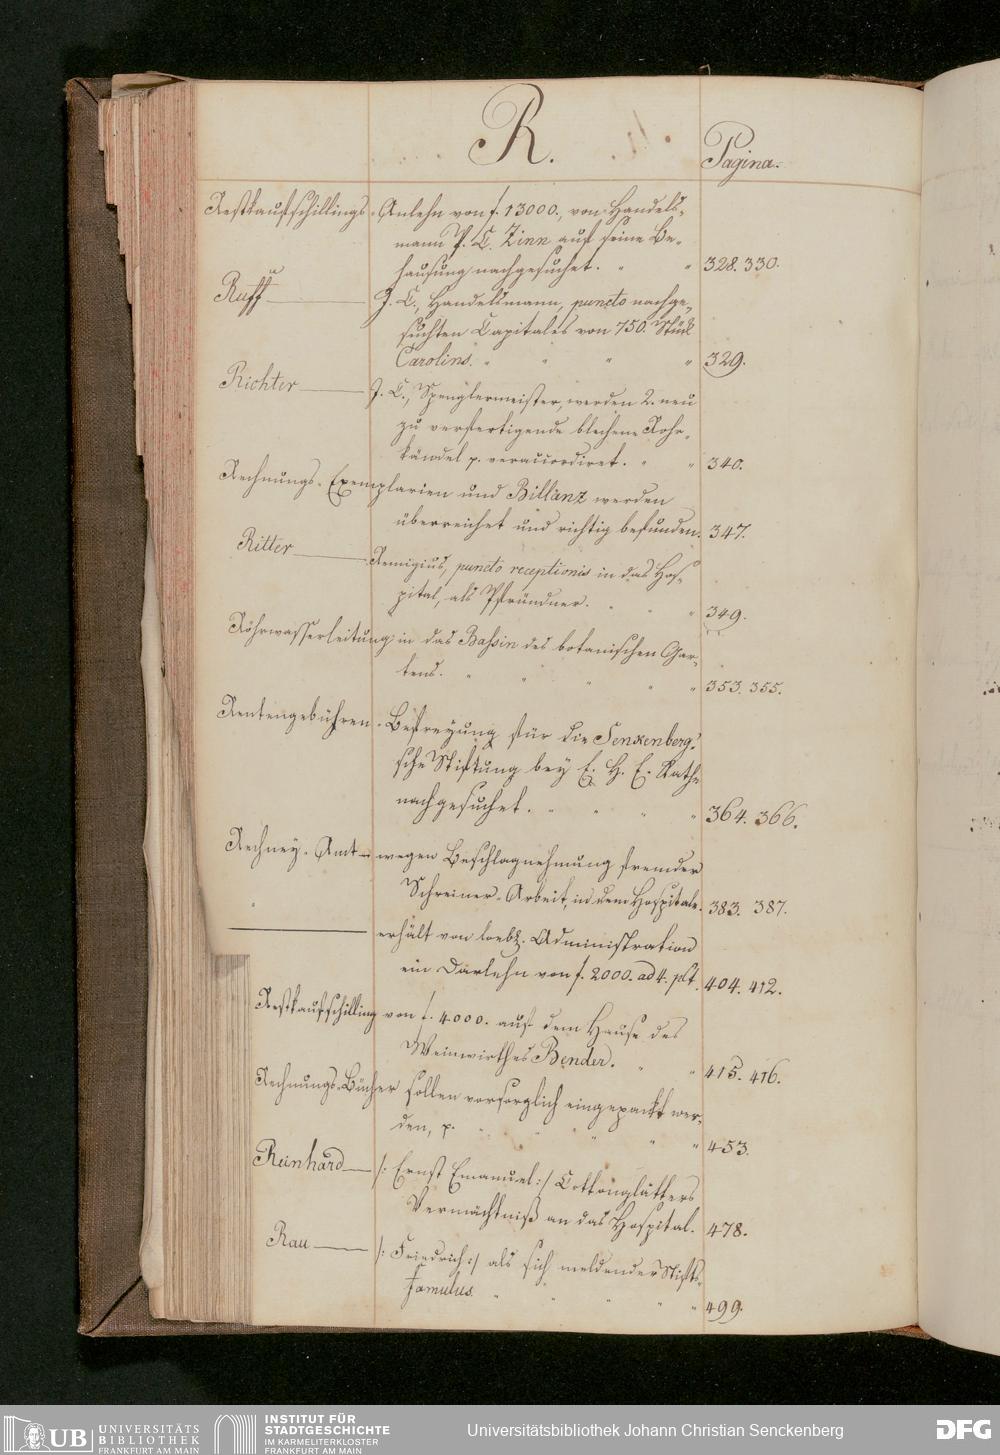 R.
Pagina.
Restkaufschillings-Anlehn von f. 13000., von Handels-
mann P. C. Zinn auf seine Be-
hausung nachgesuchet. " " 328. 330.
Ruff J. C., Handelsmann, puncto nachge-
suchten Capitales von 750. Stück
Carolins. " " " " 329.
Richter J. C., Spenglermeister, werden 2. neu
zu verfertigende blechene Rohr-
kändel p. veraccordiret. " " 340.
Rechnungs-Exemplarien und Billanz werden
überreichet und richtig befunden. 347.
Ritter Remigius, puncto receptionis in das Hos-
pital, als Pfründner. " " " 349.
Röhrwasserleitung in das Baßin des botanischen Gar-
tens. " " " " " 353. 355.
Rentengebühren-Befreyung für die Senkenberg-
sche Stiftung bey E. H. E. Rathe
nachgesuchet. " " " " 364. 366.
Rechney-Amt wegen Beschlagnehmung fremder
Schreiner-Arbeit, in dem Hospitale. 383. 387.
erhält von loebl. Administration
ein Darlehn von f. 2000. ad 4. pCt. 404. 412.
Restkaufschilling von f. 4000. auf dem Hause des
Weinwirthes Bender. " " 415. 416.
Rechnungs-Bücher sollen vorsorglich eingepackt wer-
den, p. " " " " " 453.
Reinhard /: Ernst Emanuel :/ Cottonglätters
Vermächtniß an das Hospital. 478.
Rau /: Friedrich :/ als sich meldender Stifts-
famulus. " " " " 499.
UB UNIVERSITÄTS
BIBLIOTHEK
FRANKFURT AM MAIN
INSTITUT FÜR
STADTGESCHICHTE
IM KARMELITERKLOSTER
FRANKFURT AM MAIN
Universitätsbibliothek Johann Christian Senckenberg
DFG